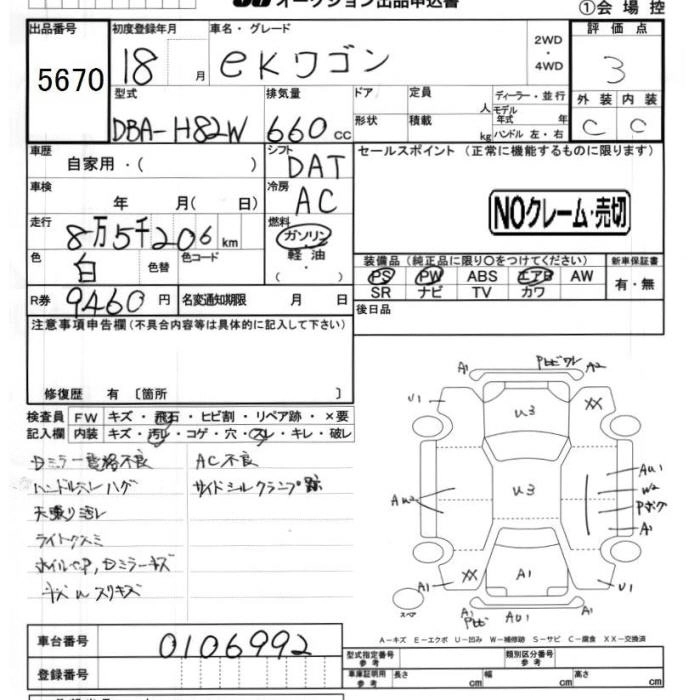 オークション出品申込書
①会場控
出品番号 初度登録年月 車名・グレード 2WD・4WD 評価点
5670 18 月 eKワゴン 3
型式 排気量 ドア 定員 人 ディーラー・並行 外装 内装
DBA-H82W 660 cc 形状 積載 kg モデル年式 年 ハンドル 左・右 C C
車歴 シフト セールスポイント (正常に機能するものに限ります)
自家用・( ) DAT
車検 冷房
年 月( 日) AC
NOクレーム・売切
走行 燃料
8万5千206km ガソリン
色 色替 色コード 軽油
白 ( )
装備品(純正品に限り〇をつけてください) 新車保証書
PS PW ABS エアB AW 有・無
SR ナビ TV カワ
R券 9460円 名変通知期限 月 日
後日品
注意事項申告欄(不具合内容等は具体的に記入して下さい)
修復歴 有 〔箇所 〕
検査員 FW キズ・飛石・ヒビ割・リペア跡・×要
記入欄 内装 キズ・汚レ・コゲ・穴・スレ・キレ・破レ
Dミラー電格不良 AC不良
ハンドルホンハゲ サイドシルクランプ跡
天張り汚レ
ライトクスミ
ホイルcap,Dミラーキズ
キズwスリキズ
A1 PヒビワレA2
U1 XX
U3
AW2 U3 AU1
W2
Pボケ
A1
XX A1
A1 U1
スペア A1 Pヒビ AU1 A1
A-キズ E-エクボ U-凹み W-補修跡 S-サビ C-腐食 XX-交換済
車台番号 0106992
型式指定番号 参考 類別区分番号 参考
登録番号
車庫証明用 参考 長さ cm 幅 cm 高さ cm